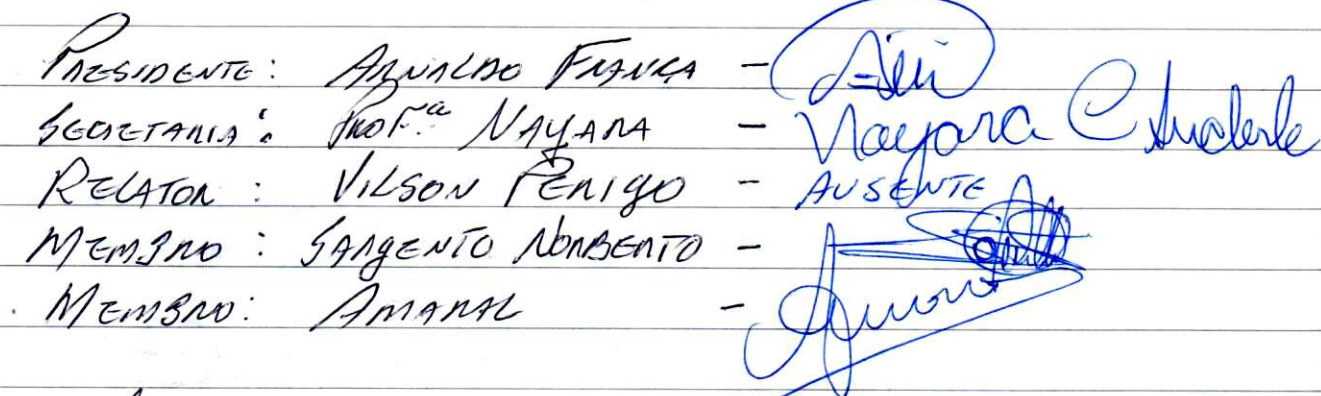 PRESIDENTE: ARNALDO FRANÇA -
SECRETARIA: PROF.ª NAYARA - Nayara C
RELATOR: VILSON PERIGO - AUSENTE
MEMBRO: SARGENTO NORBERTO -
MEMBRO: AMARAL -